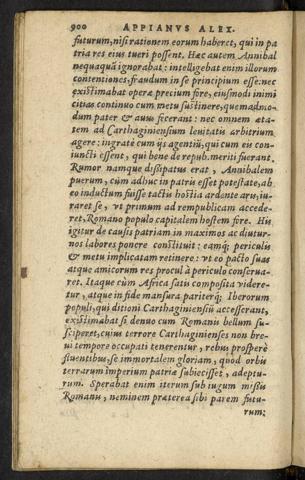 900 APPIANVS ALEX.
futurum, nisi rationem eorum haberet, qui in pa
tria res eius tueri possent. Hæc autem Annibal
nequaquã ignorabat: intelligebat enim illorum
contentiones, fraudum in se principium esse: nec
existimabat operæ precium fore, eiusmodi inimi
citias continuo cum metu sustinere, quemadmo-
dum pater & auus fecerant: nec omnem æta-
tem ad Carthaginiensium leuitatis arbitrium
agere: ingratè cum ijs agentiũ, qui cum eis con-
iuncti essent, qui bene de repub. meriti fuerant.
Rumor namque dissipatus erat, Annibalem
puerum, cùm adhuc in patris esset potestate, ab
eo inductum fuisse tactis hostia ardente aris, iu-
raret se, vt primum ad rempublicam accede-
ret, Romano populo capitalem hostem fore. His
igitur de causis patriam in maximos ac diutur-
nos labores poncre constituit: eamq́; periculis
& metu implicatam retinere: vt eo pacto suas
atque amicorum res procul à periculo conserua-
ret. Itaque cùm Africa satis composita videre-
tur, atque in fide mansura pariterq́; Iberorum
populi, qui ditioni Carthaginensiũ accesserant,
existimabat si denuo cum Romanis bellum su-
sciperet, cuius terrore Carthaginienses non bre-
ui tempore occupati tenerentur, rebus prosperè
fluentibus, se immortalem gloriam, quòd orbis
terrarum imperium patriæ subiecisset, adeptu-
rum. Sperabat enim iterum sub iugum missis
Romanis, neminem præterea sibi parem futu-
rum: